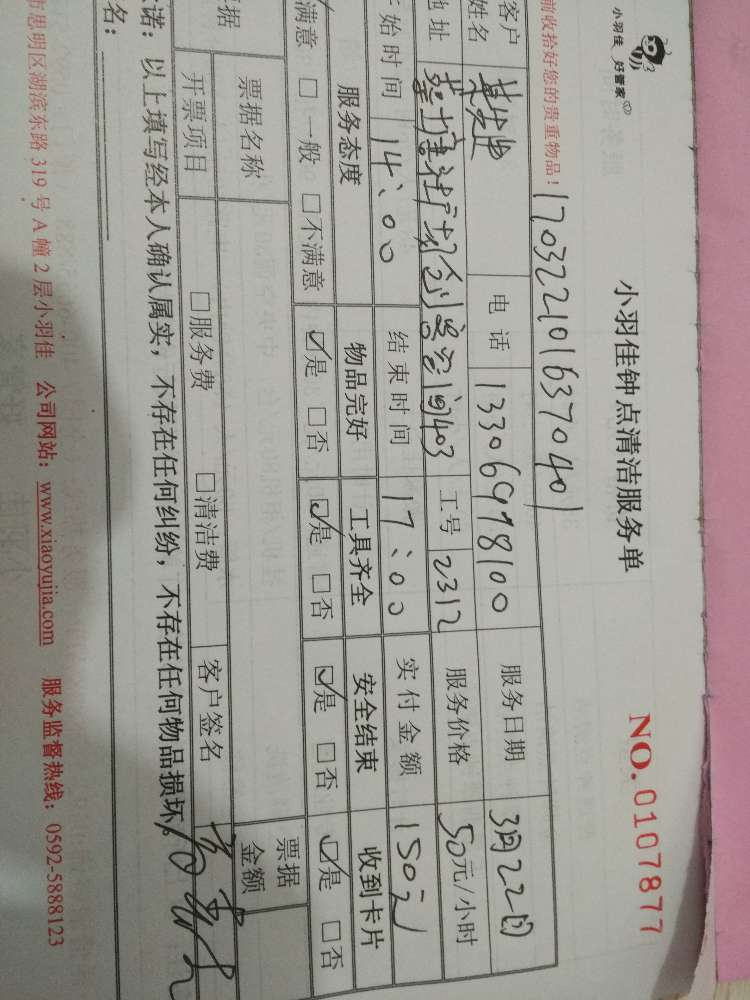 小羽佳 好管家
小羽佳钟点清洁服务单
NO. 0107877
前收拾好您的贵重物品！
1703221016370401
客户姓名 电话 13306978100 服务日期 3月22日
地址 403 工号 2312 服务价格 50元/小时
开始时间 14:00 结束时间 17:00 实付金额 150元
服务态度 物品完好 工具齐全 安全结束 收到卡片
满意 □一般 □不满意 ☑是 □否 ☑是 □否 ☑是 □否 ☑是 □否
票据 票据名称 票据金额
开票项目 □服务费 □清洁费 客户签名
诺：以上填写经本人确认属实，不存在任何纠纷，不存在任何物品损坏。
名：
市思明区湖滨东路 319 号 A 幢 2 层小羽佳 公司网站：www.xiaoyujia.com 服务监督热线：0592-5888123